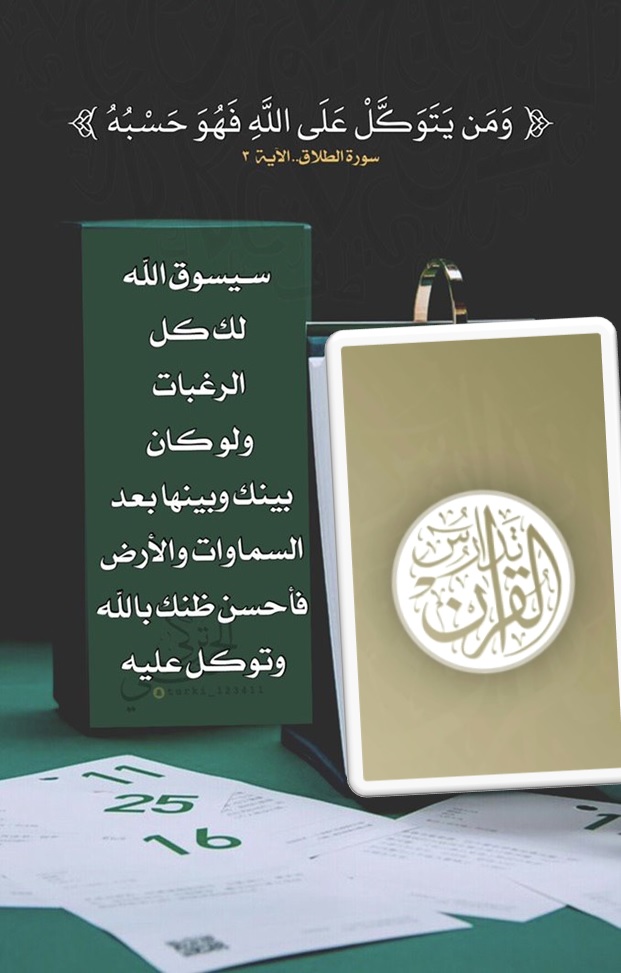 ﴿ وَمَن يَتَوَكَّلْ عَلَى اللَّهِ فَهُوَ حَسْبُهُ ﴾
سورة الطلاق..الآية ٣
سيسوق الله
لك كل
الرغبات
ولو كان
بينك وبينها بعد
السماوات والأرض
فأحسن ظنك بالله
وتوكل عليه
turki_123411
تَدَارُسُ
القُرآن
11
25
16